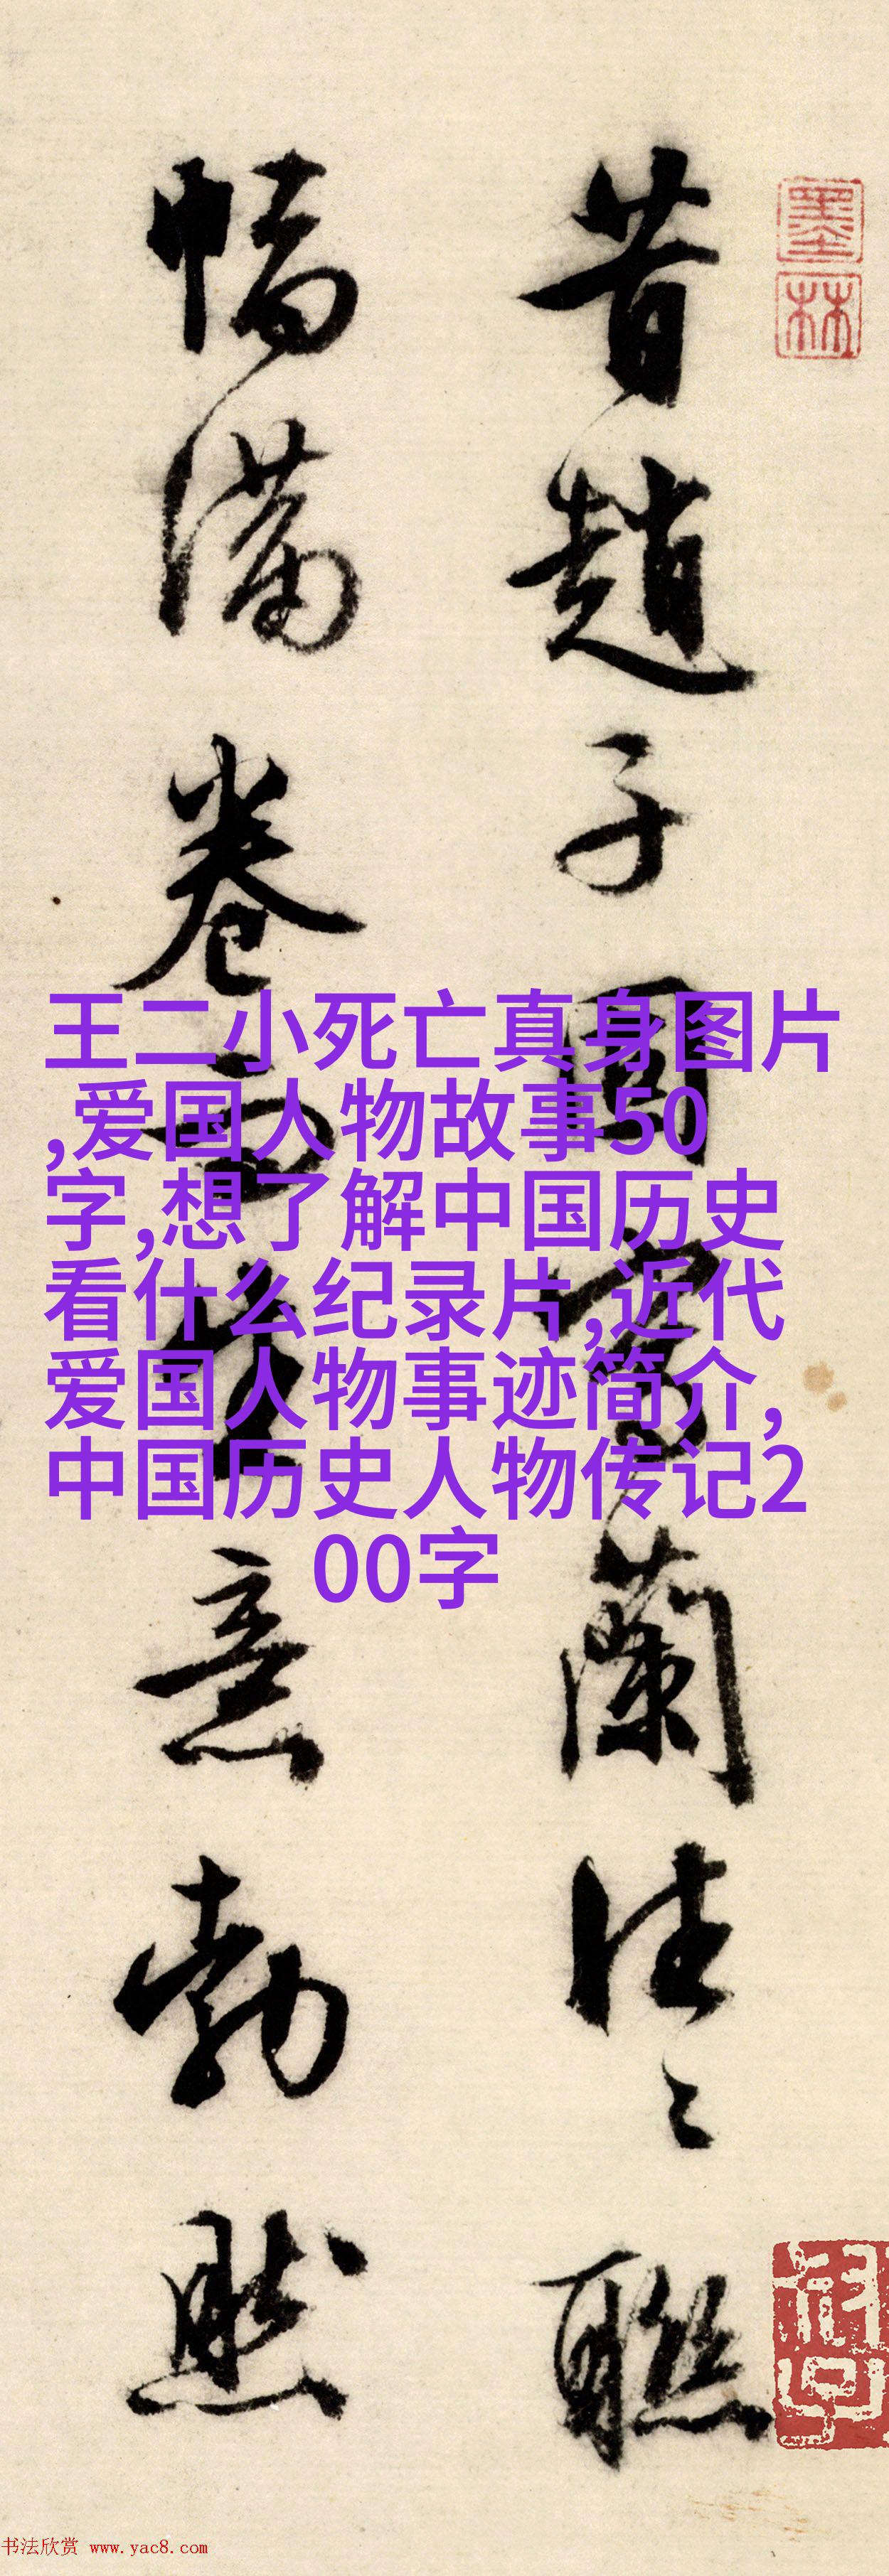 昔趙子固寫蘭往〻聯
幅滿卷而生意勃然
墨林
王二小死亡真身图片
,爱国人物故事50
字,想了解中国历史
看什么纪录片,近代
爱国人物事迹简介,
中国历史人物传记2
00字
书法欣赏 www.yac8.com